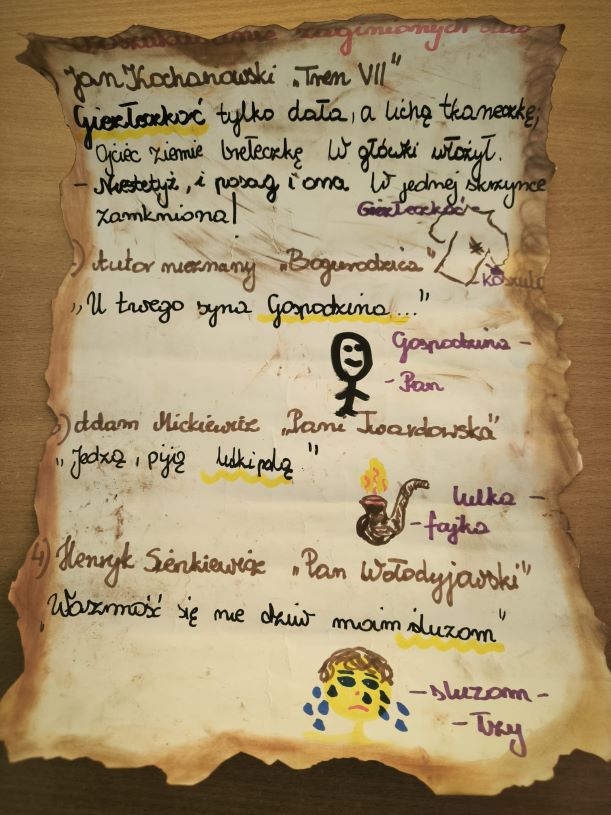 Poszukiwanie zaginionych słów
Jan Kochanowski „Tren VII"
Giezłeczkoć tylko dała, a lichą tkaneczkę;
Ojciec ziemie brełeczkę W główki włożył.
- Niestetyż, i posag i ona W jednej skrzynce
zamkniona!
Giezłeczkoć -
- koszula
2) Autor nieznany „Bogurodzica"
„U twego syna Gospodzina..."
Gospodzina -
- Pan
3) Adam Mickiewicz „Pani Twardowska"
„Jedzą, piją lulki palą "
lulka -
- fajka
4) Henryk Sienkiewicz „Pan Wołodyjowski"
„Waszmość się nie dziw moim śluzom"
- śluzom -
- Łzy